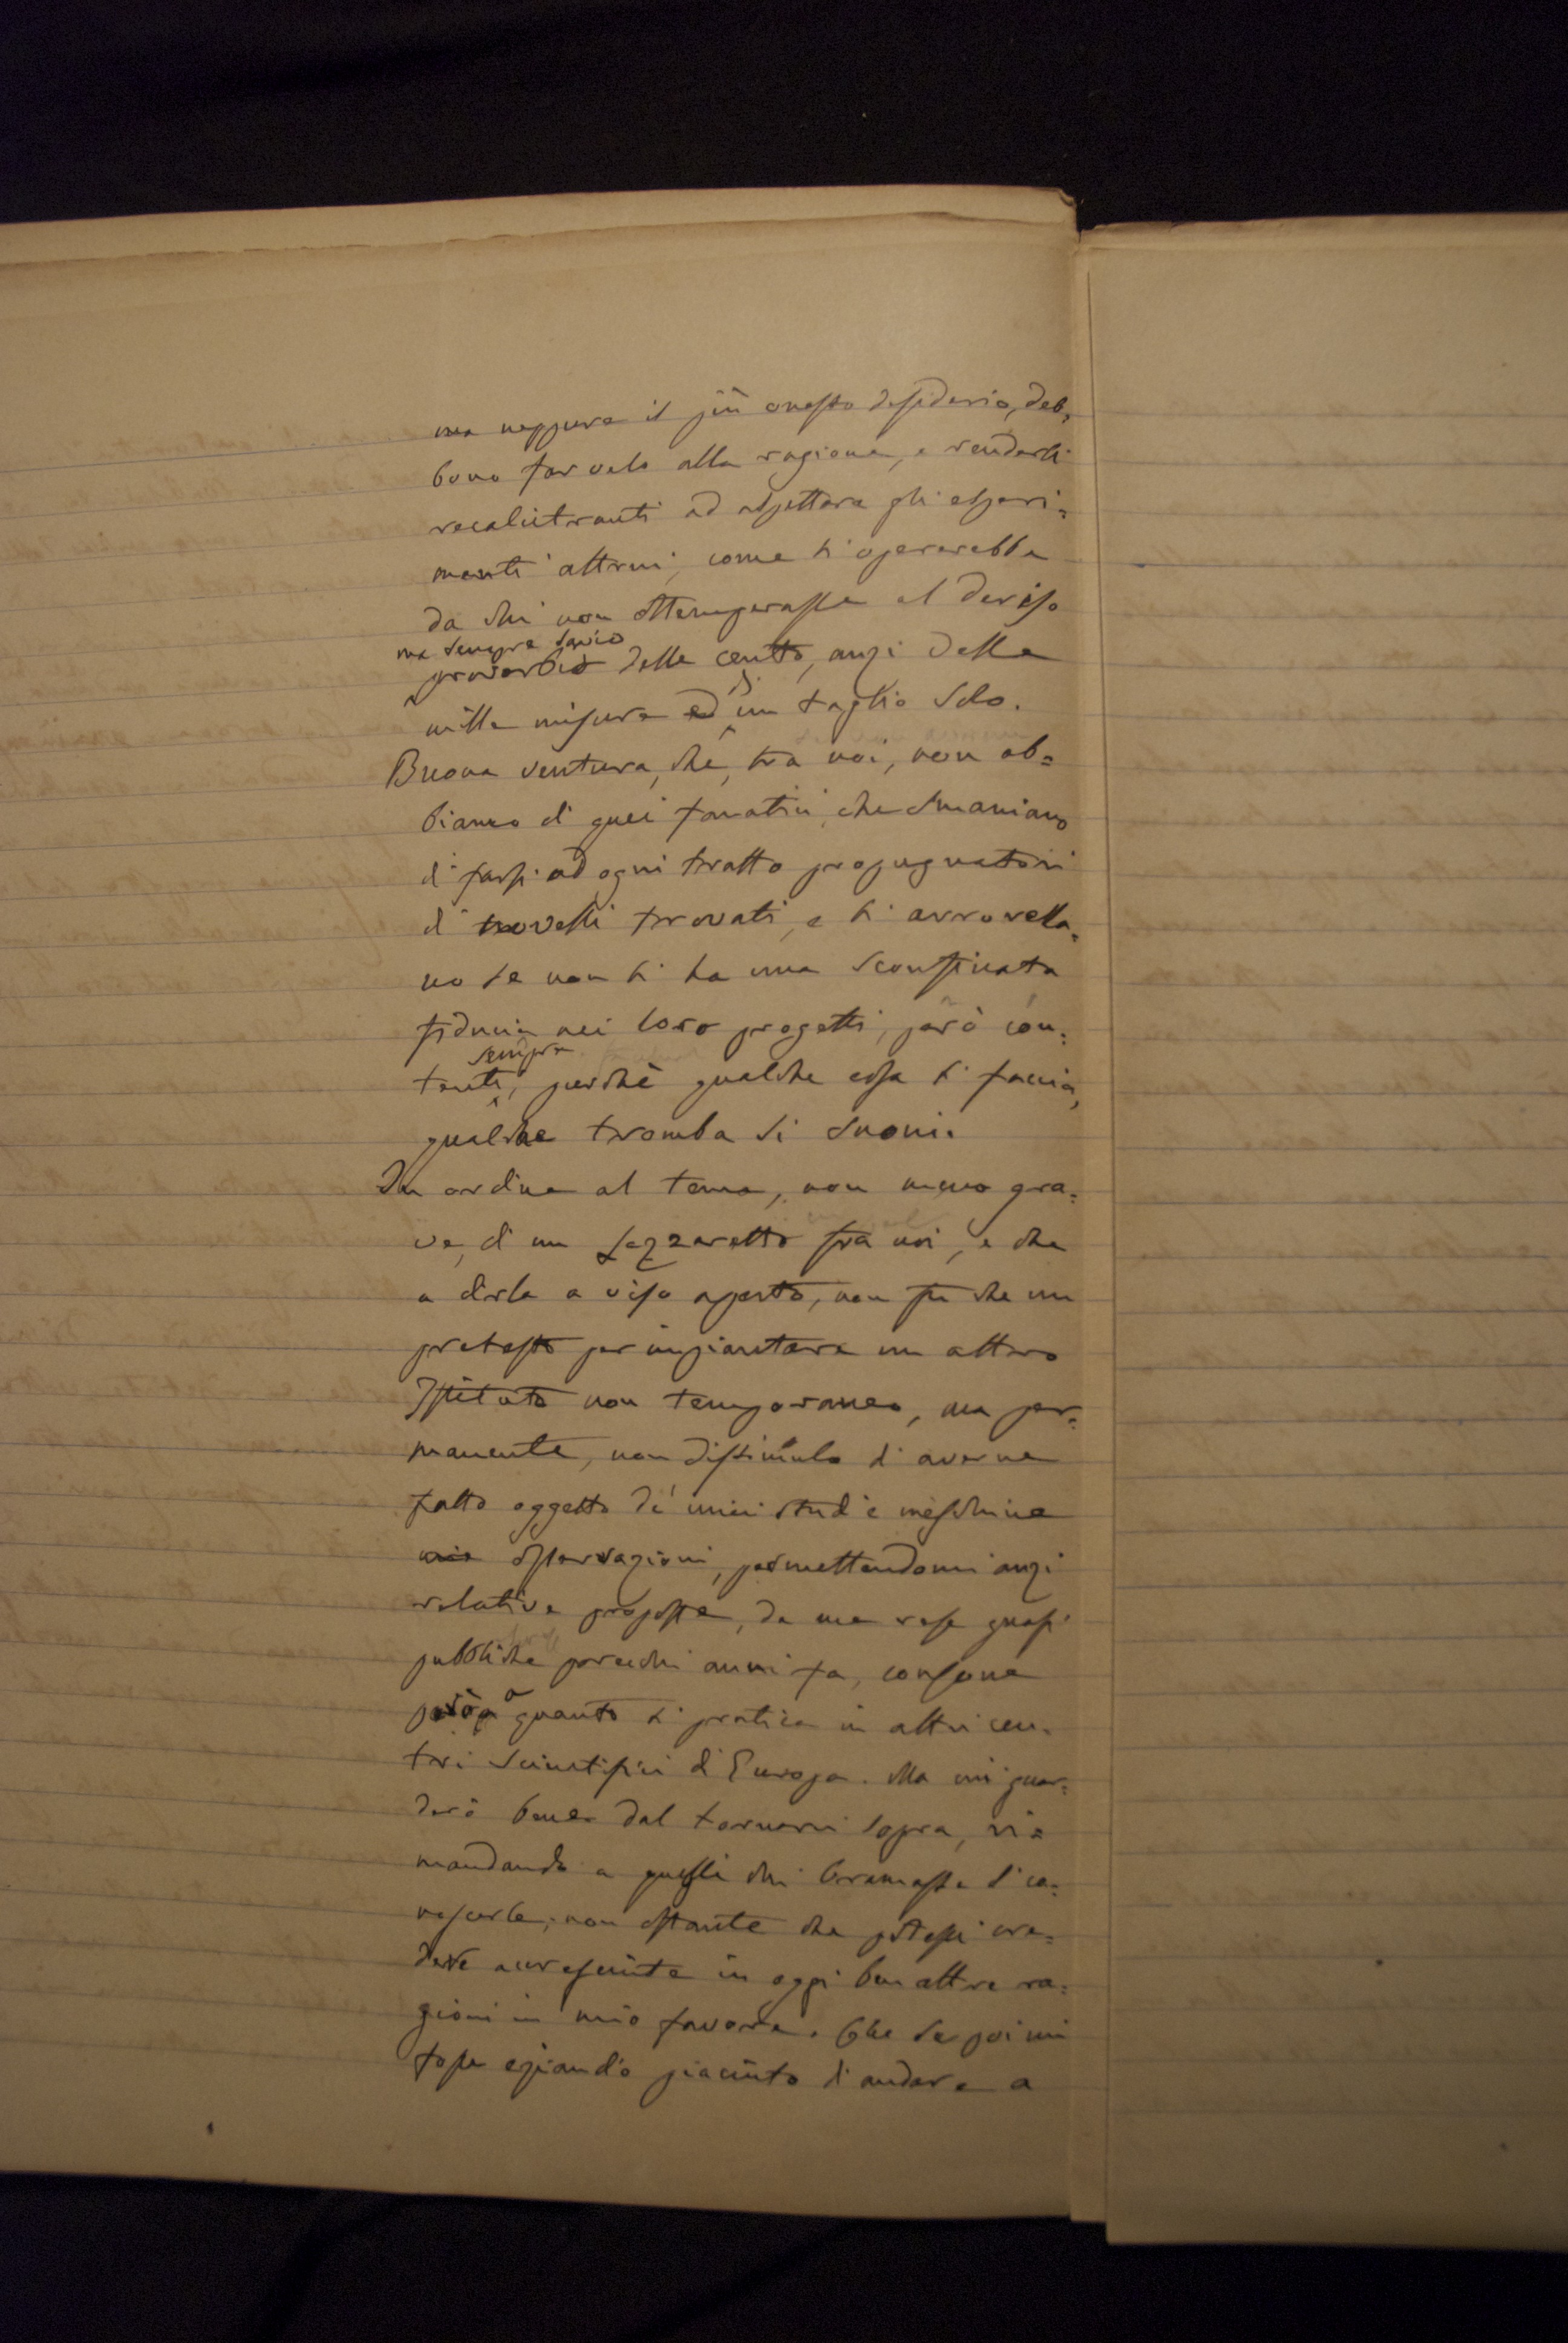 ma neppure il più onesto desiderio, deb=
bono far velo alla ragione, e renderli
recalcitranti ad aspettare gli esperi=
menti altrui, come si opererebbe
da chi non ottemperasse al deriso
ma sempre savio
proverbio delle cento, anzi delle
mille misure ed di un taglio solo.
Buona ventura, che, tra noi, non ab=
biamo di quei fanatici, che smaniano
di farsi ad ogni tratto propugnatori
di novelli trovati, e si arrovella=
no se non si ha una sconfinata
fiducia nei loro progetti, però con=
sempre
tenti, perchè qualche cosa si faccia,
qualche tromba si suoni.
In ordine al tema, non meno gra=
ve, di un Lazzaretto fra noi, e che
a dirla a viso aperto, non fu che un
pretesto per impiantare un altro
Istituto non temporaneo, ma per=
manente, non dissimulo di averne
fatto oggetto de' miei studi e meschine
mie osservazioni, permettendomi anzi
relative proposte, da me rese quasi
pubbliche parecchi anni fa, consone
però a quanto si pratica in altri cen=
tri scientifici di Europa. Ma mi guar=
derò bene dal tornarvi sopra, ri=
mandando a quelli chi bramasse di co=
noscerle, non ostante che potessi cre=
dere accresciute in oggi ben altre ra=
gioni in mio favore. Che se poi mi
fosse eziandio piaciuto di andare a